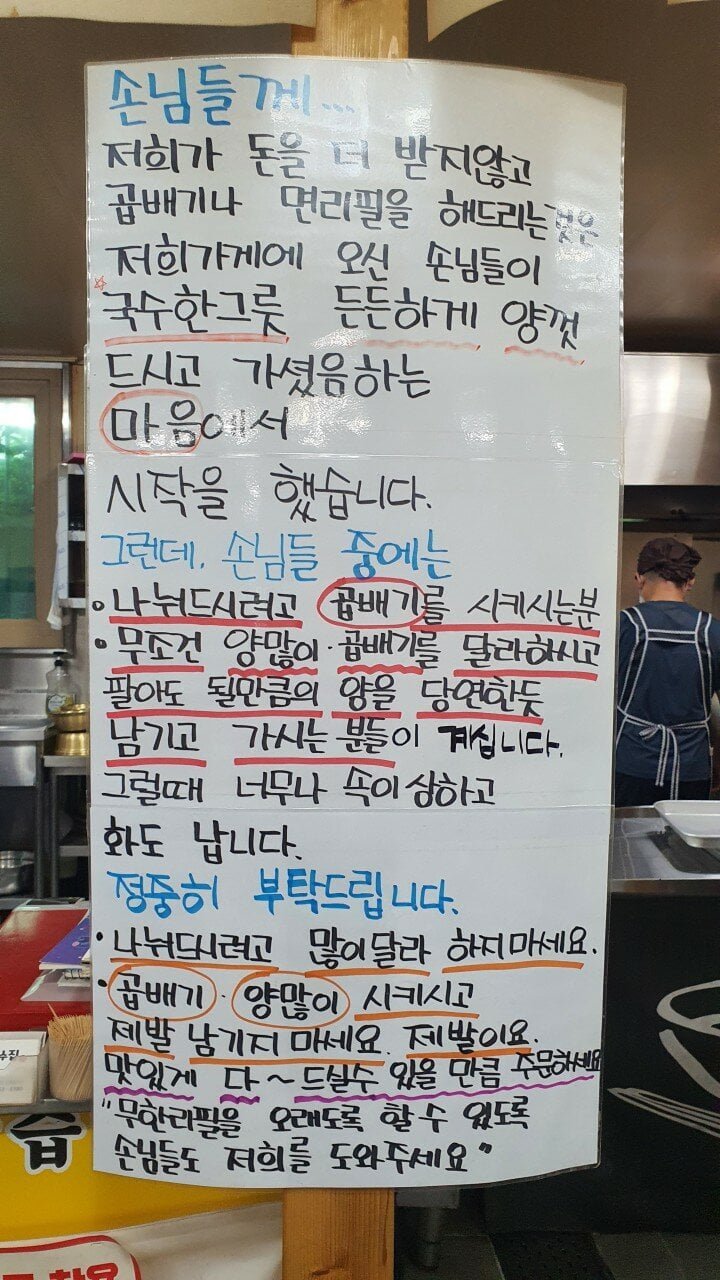 손님들께...
저희가 돈을 더 받지않고
곱배기나 면리필을 해드리는것은
저희가게에 오신 손님들이
☆국수한그릇 든든하게 양껏
드시고 가셨음하는
마음에서
시작을 했습니다.
그런데, 손님들 중에는
• 나눠드시려고 곱배기를 시키시는분
• 무조건 양많이·곱배기를 달라하시고
팔아도 될만큼의 양을 당연한듯
남기고 가시는 분들이 계십니다.
그럴때 너무나 속이상하고
화도 납니다.
정중히 부탁드립니다.
• 나눠드시려고 많이달라 하지마세요.
• 곱배기·양많이 시키시고
제발 남기지 마세요. 제발이요.
맛있게 다~ 드실수 있을 만큼 주문하세요
"무한리필을 오래도록 할 수 있도록
손님들도 저희를 도와주세요"
수집
습